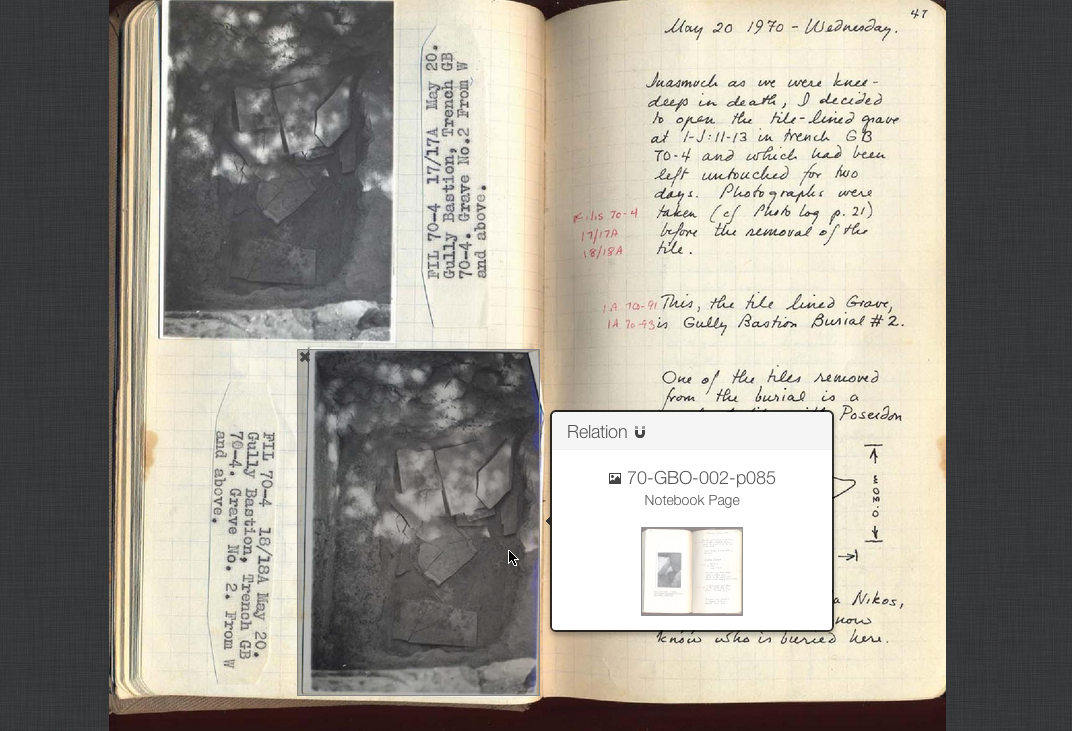 FIL 70-4 17/17A May 20.
Gully Bastion, Trench GB
70-4. Grave No.2 From W
and above.
FIL 70-4 18/18A May 20.
Gully Bastion, Trench GB
70-4. Grave No. 2. From W
and above.
47
May 20 1970 - Wednesday.
Inasmuch as we were knee-
deep in death, I decided
to open the tile-lined grave
at I-J:11-13 in trench GB
70-4 and which had been
left untouched for two
days. Photographs were
taken (cf Photo log p. 21)
before the removal of the
tile.
70-4
17/17A
18/18A
This, the tile lined Grave,
is Gully Bastion Burial # 2.
IA 70-91
IA 70-93
One of the tiles removed
from the burial is a
Poseidon
Nikos,
know who is buried here.
Relation
70-GBO-002-p085
Notebook Page